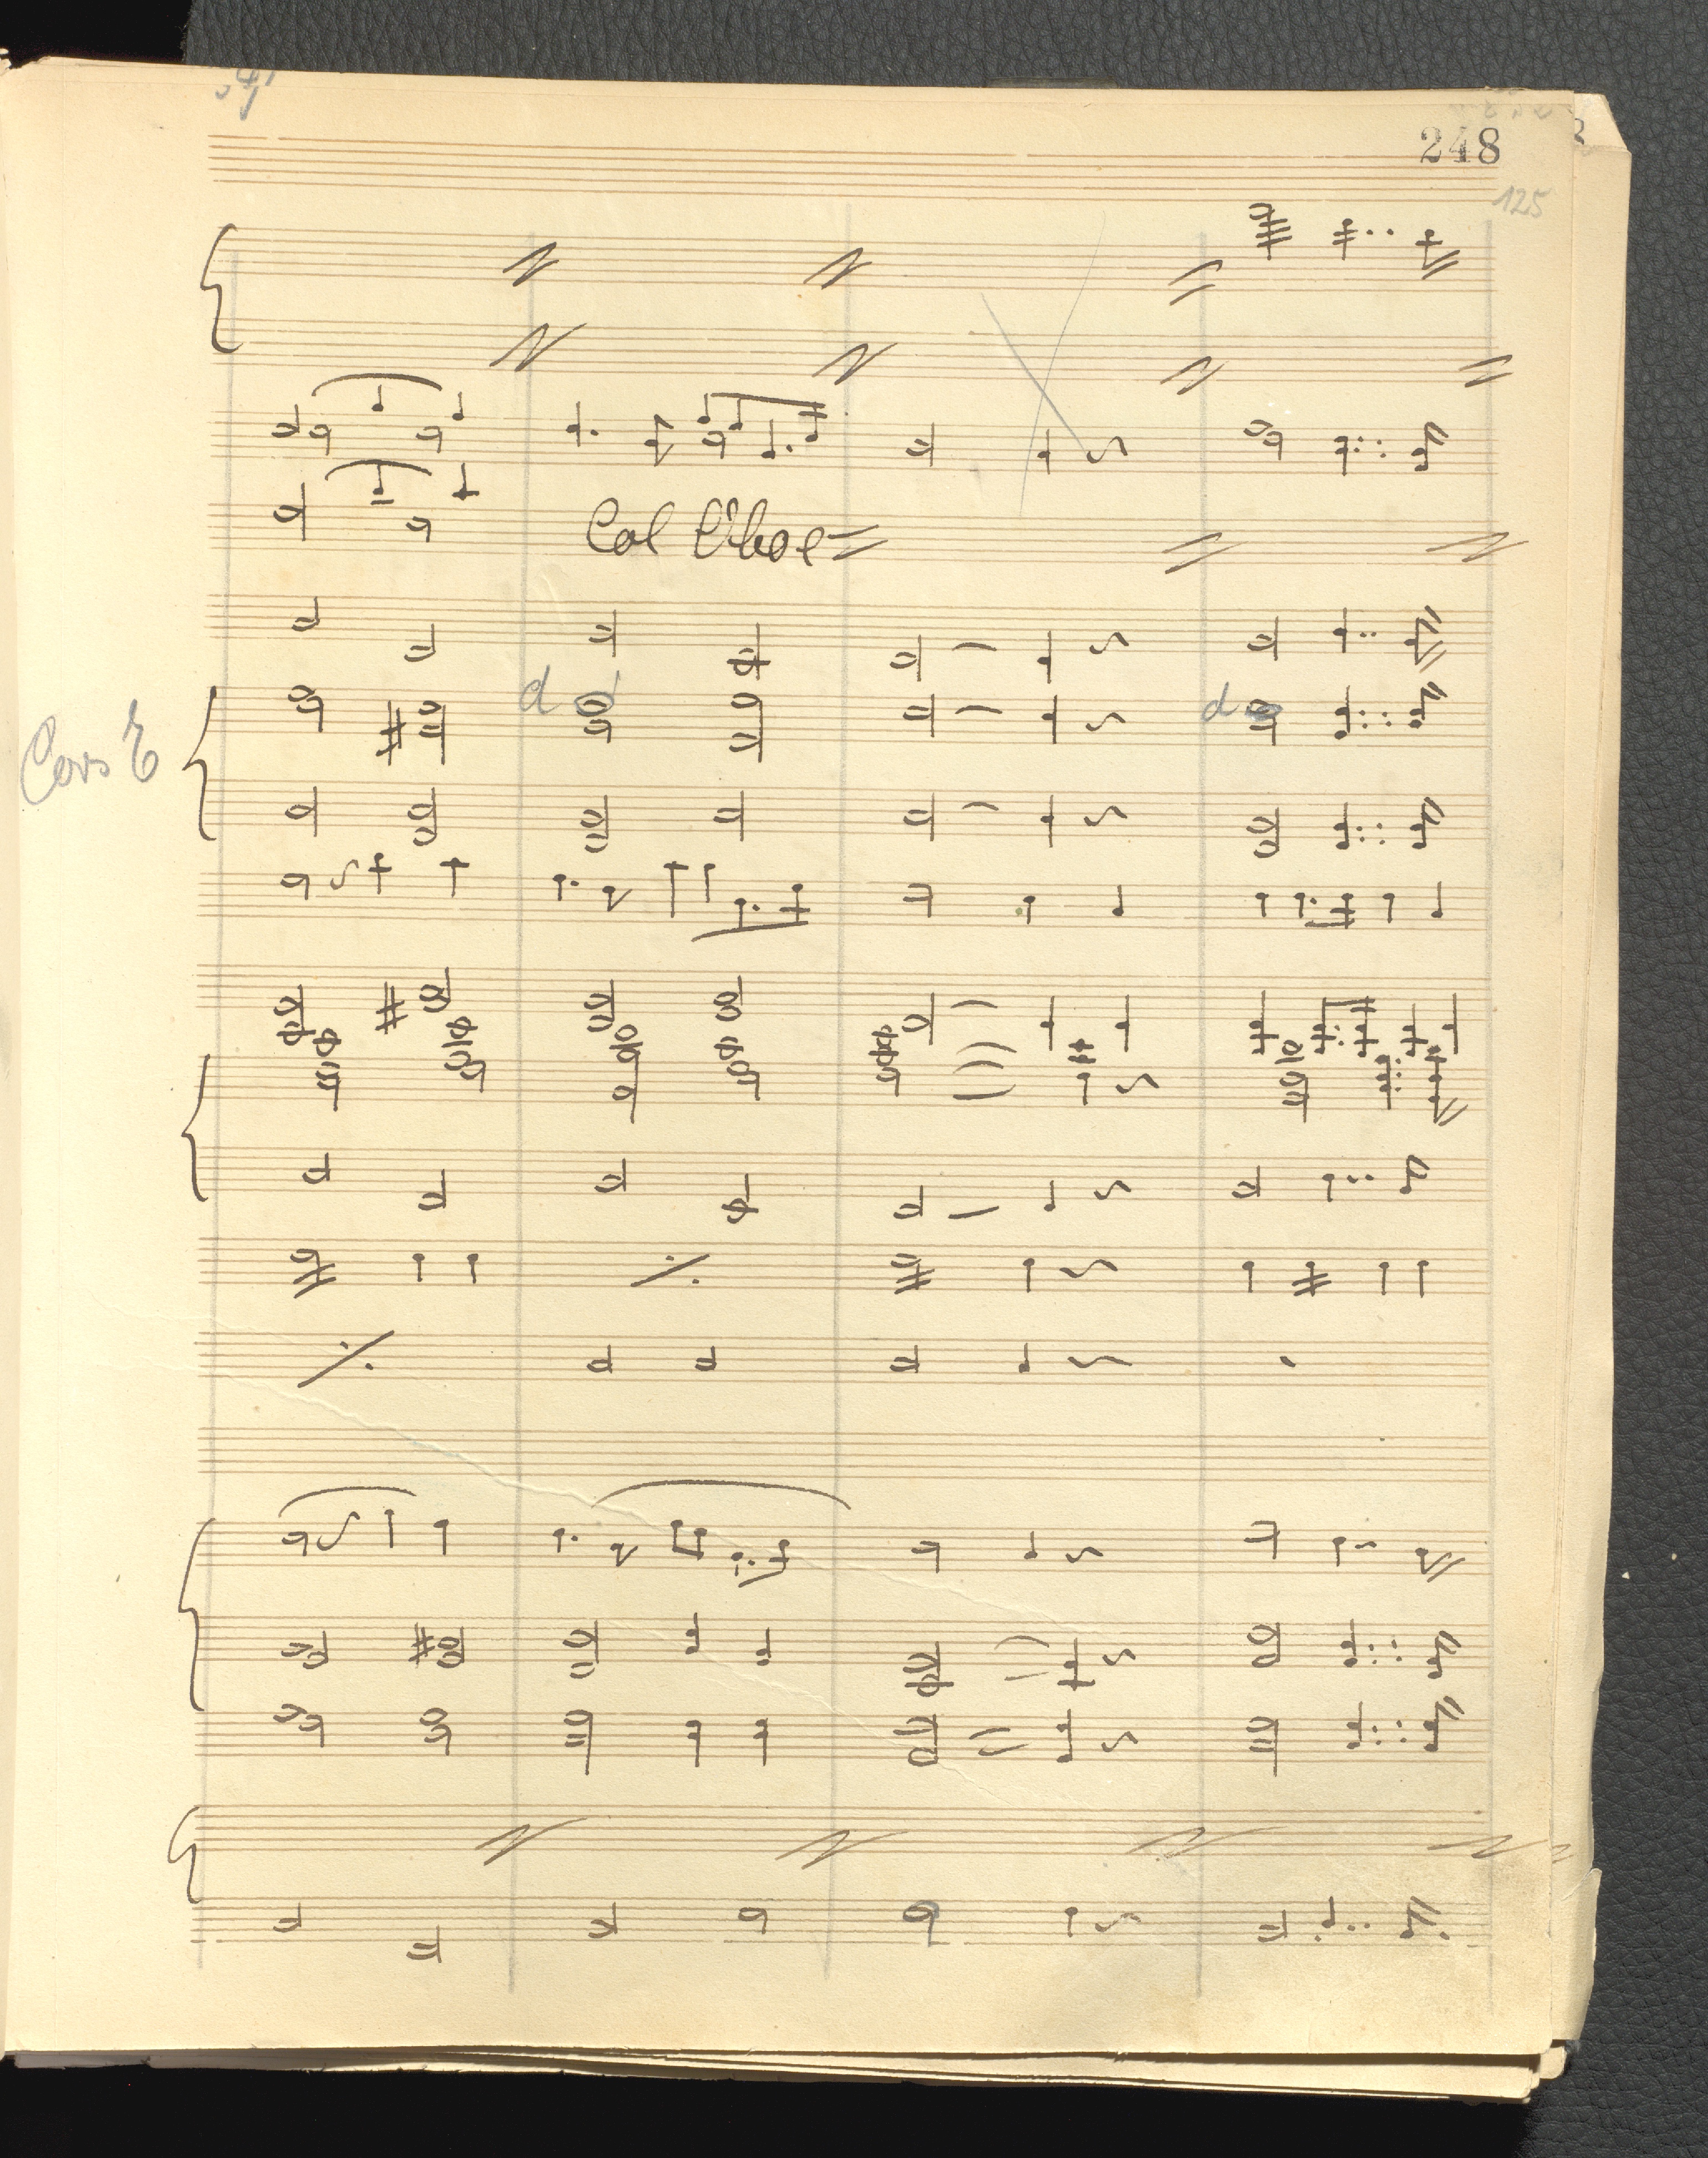 248
125
Col Oboe
d
d
Cors E